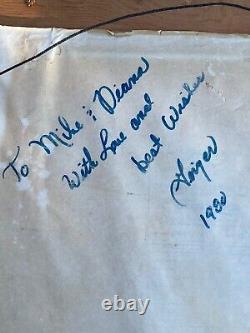 To Mike & Diana
With Love and
best Wishes
1980
ebay